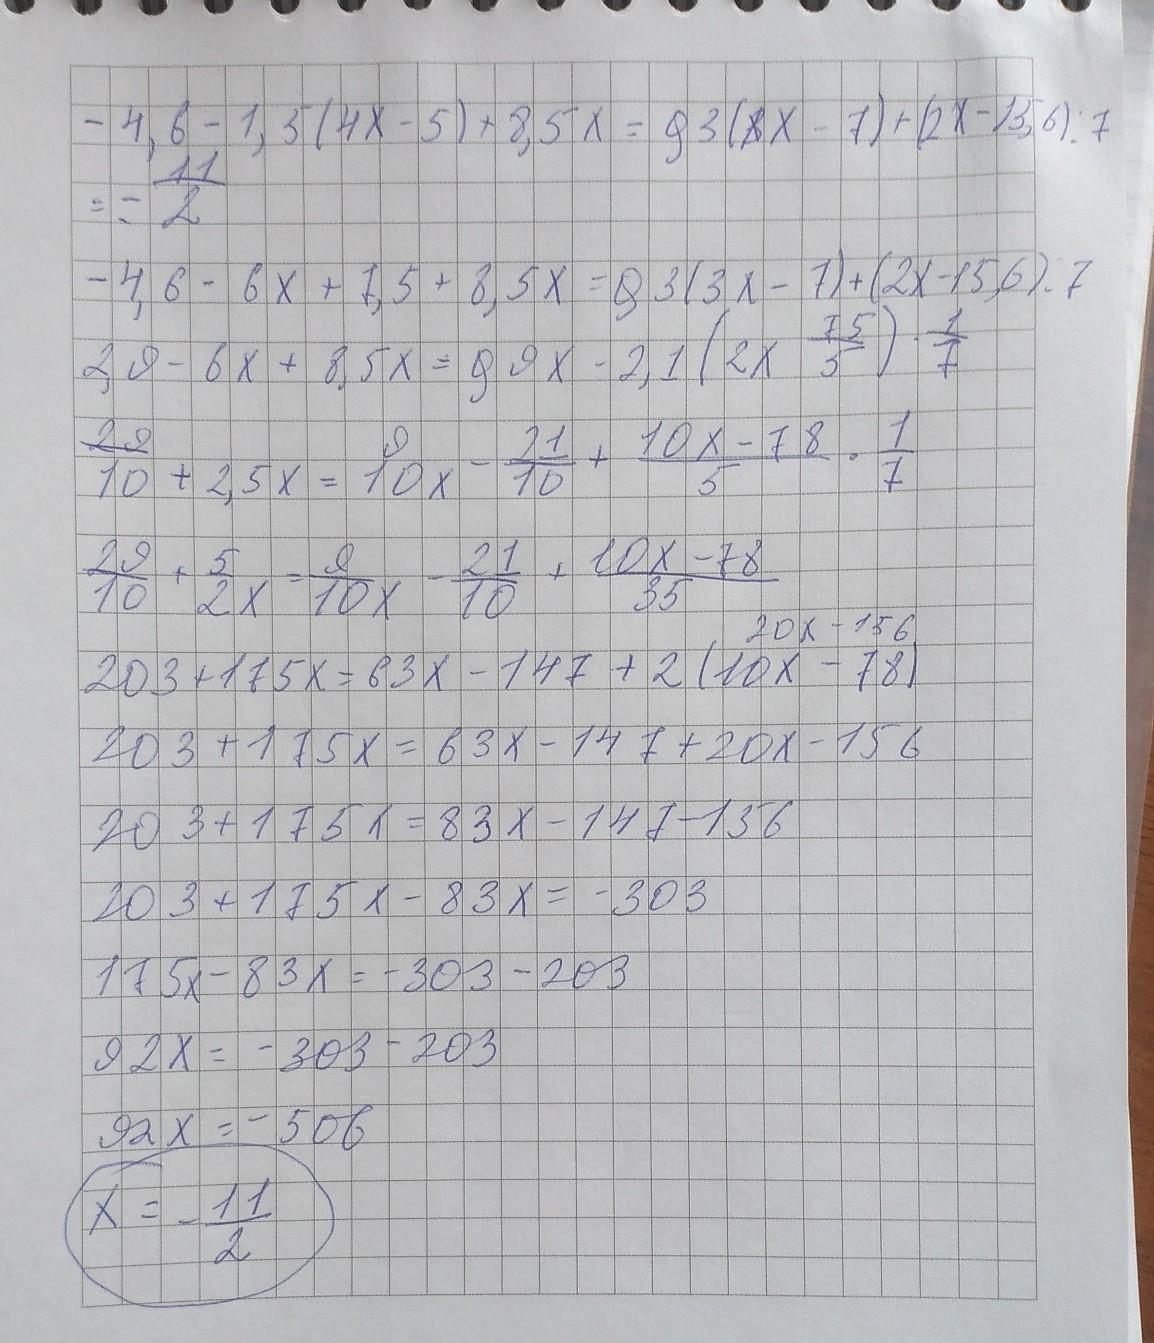 -4,6-1,5(4x-5)+8,5x=0,3(3x-7)+(2x-15,6):7
=-11/2
-4,6-6x+7,5+8,5x=0,3(3x-7)+(2x-15,6):7
2,9-6x+8,5x=0,9x-2,1(2x 75/5)·1/7
29/10+2,5x=9/10x-21/10+10x-78/5·1/7
29/10+5/2x=9/10x-21/10+10x-78/35
20x-156
203+175x=63x-147+2(10x-78)
203+175x=63x-147+20x-156
203+175x=83x-147-156
203+175x-83x=-303
175x-83x=-303-203
92x=-303-203
92x=-506
x=-11/2